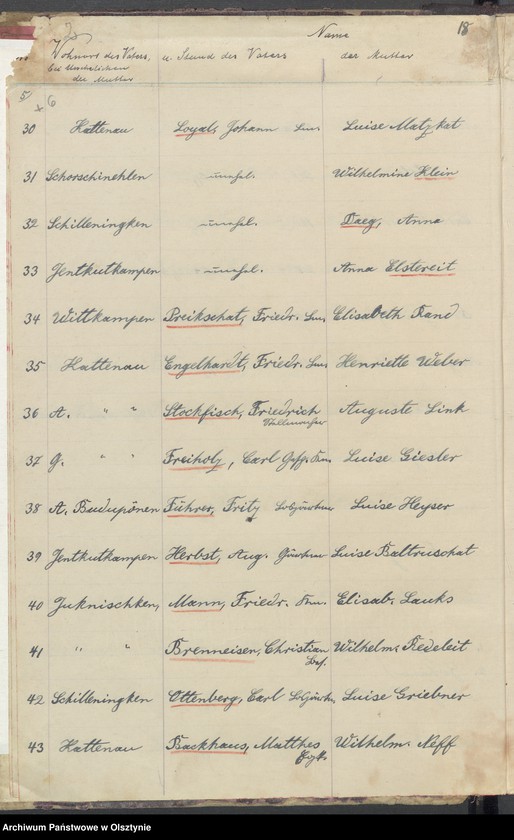 Name 18
Wohnort des Vaters, u. Stand des Vaters der Mutter
bei Unehelichen
der Mutter
5 x 6
30 Kattenau Loyal, Johann Luise Matzkat
31 Schorschinehlen unehel. Wilhelmine Klein
32 Schilleningken unehel. Daeg, Anna
33 Jentkutkampen unehel. Anna Elstereit
34 Wittkampen Preikschat, Friedr. Elisabeth Rand
35 Kattenau Engelhardt, Friedr. Henriette Weber
36 A. " " Stockfisch, Friedrich Auguste Link
37 G. " " Freiholz, Carl Luise Giester
38 A. Budupönen Führer, Fritz Luise Heyser
39 Jentkutkampen Herbst, Aug. Luise Baltruschat
40 Juknischken, Mann, Friedr. Elisab. Lauks
41 " " Brenneisen, Christian Wilhelm. Redeleit
42 Schilleningken Ottenberg, Carl Luise Griebner
43 Kattenau Backhaus, Matthes Wilhelm. Neff
Archiwum Państwowe w Olsztynie